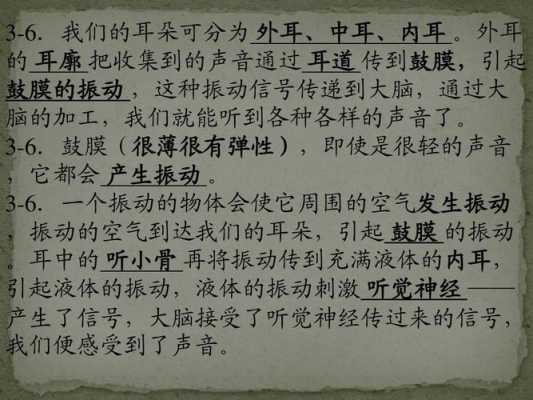 3-6. 我们的耳朵可分为 外耳、中耳、内耳 。外耳
的 耳廓 把收集到的声音通过 耳道 传到鼓膜，引起
鼓膜的振动 ，这种振动信号传递到大脑，通过大
脑的加工，我们就能听到各种各样的声音了。
3-6. 鼓膜（很薄很有弹性），即使是很轻的声音
，它都会 产生振动 。
3-6. 一个振动的物体会使它周围的空气发生振动
，振动的空气到达我们的耳朵，引起 鼓膜 的振动
。耳中的 听小骨 再将振动传到充满液体的内耳，
引起液体的振动，液体的振动刺激 听觉神经 ——
产生了信号，大脑接受了听觉神经传过来的信号，
我们便感受到了声音。